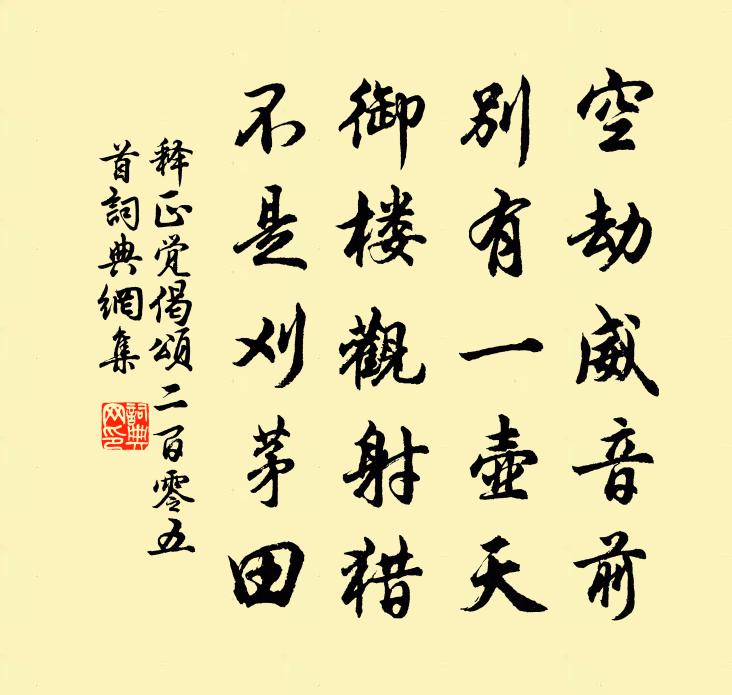 空劫威音前
别有一壶天
御楼觀射猎
不是刈茅田
释正觉偈颂二百零五
首詞典網集
詞典
网印